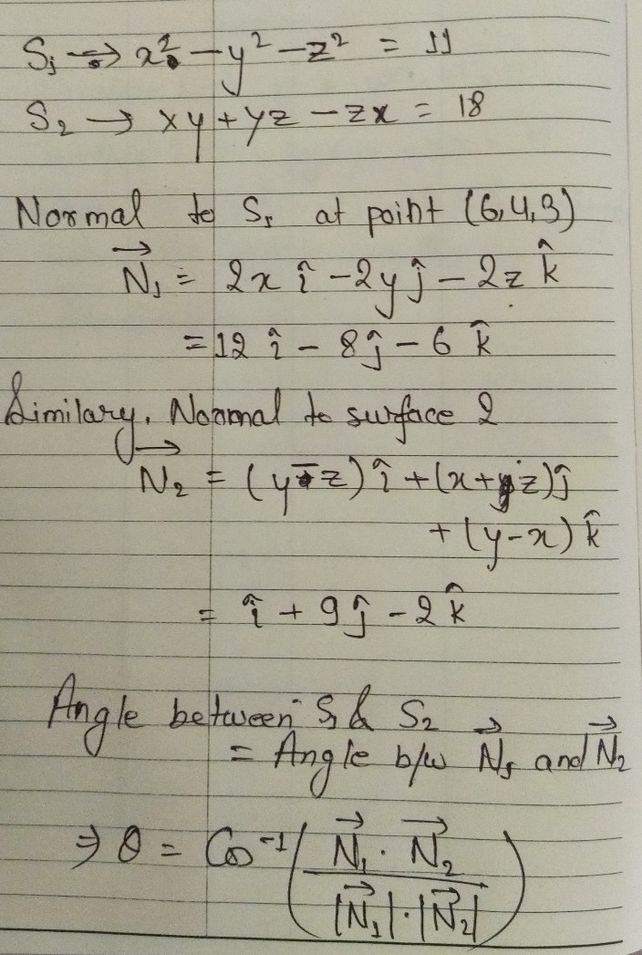 S₁ → x² - y² - z² = 11
S₂ → xy + yz - zx = 18
Normal to S₁ at point (6,4,3)
N⃗₁ = 2x î - 2y ĵ - 2z k̂
= 12 î - 8 ĵ - 6 k̂
Similary, Normal to surface 2
N⃗₂ = (y - z) î + (x + z) ĵ
+ (y - x) k̂
= î + 9 ĵ - 2 k̂
Angle between S₁ & S₂
= Angle b/w N⃗₁ and N⃗₂
⇒ θ = Cos⁻¹ ( N⃗₁ · N⃗₂ / |N⃗₁| · |N⃗₂| )